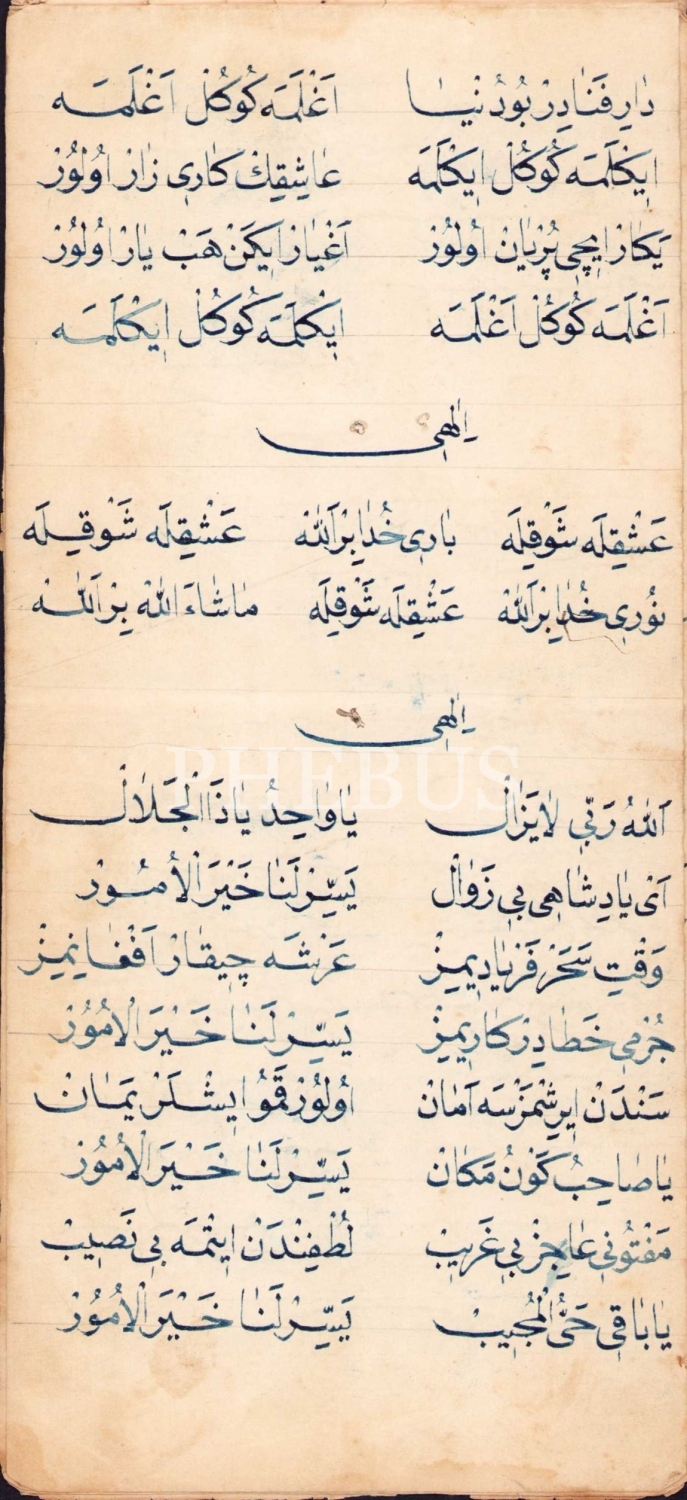 دَارِ فَنَادِرْ بُودُنْيَا اَغْلَمَه كُوكُلْ اَغْلَمَه
اِيكْلَمَه كُوكُلْ اِيكْلَمَه عَاشِقِكْ كَارِى زَارْ اُولُورْ
يَكَارْ اِيچِى پُرْيَانْ اُولُورْ اَغْيَارْ اِيكَنْ هَبْ يَارْ اُولُورْ
اَغْلَمَه كُوكُلْ اَغْلَمَه اِيكْلَمَه كُوكُلْ اِيكْلَمَه
اِلٰهِى
عَشْقِلَه شَوْقِلَه بَارِى خُدَا بِرْ اَللّٰهْ عَشْقِلَه شَوْقِلَه
نُورِى خُدَا بِرْ اَللّٰهْ عَشْقِلَه شَوْقِلَه مَاشَاءَ اللّٰهْ بِرْ اَللّٰهْ
اِلٰهِى
PHEBUS
اَللّٰهُ رَبِّى لَايَزَالْ يَا وَاحِدُ يَا ذَا الْجَلَالْ
اَىْ پَادِشَاهِى بِى زَوَالْ يَسِّرْ لَنَا خَيْرَ الْاُمُورْ
وَقْتِ سَحَرْ فَرْيَادِيمِزْ عَرْشَه چِيقَارْ اَفْغَانِمِزْ
جُرْمِى خَطَادِرْ كَارِيمِزْ يَسِّرْ لَنَا خَيْرَ الْاُمُورْ
سَنْدَنْ اِيرِشْمَزْسَه اَمَانْ اُولُورْ قَمُو اِيشْلَرْ يَمَانْ
يَا صَاحِبُ كَوْنُ مَكَانْ يَسِّرْ لَنَا خَيْرَ الْاُمُورْ
مَفْتُونِى عَاجِزْ بِى غَرِيبْ لُطْفِنْدَنْ اِيتْمَه بِى نَصِيبْ
يَا بَاقِى حَىُّ الْمُجِيبْ يَسِّرْ لَنَا خَيْرَ الْاُمُورْ